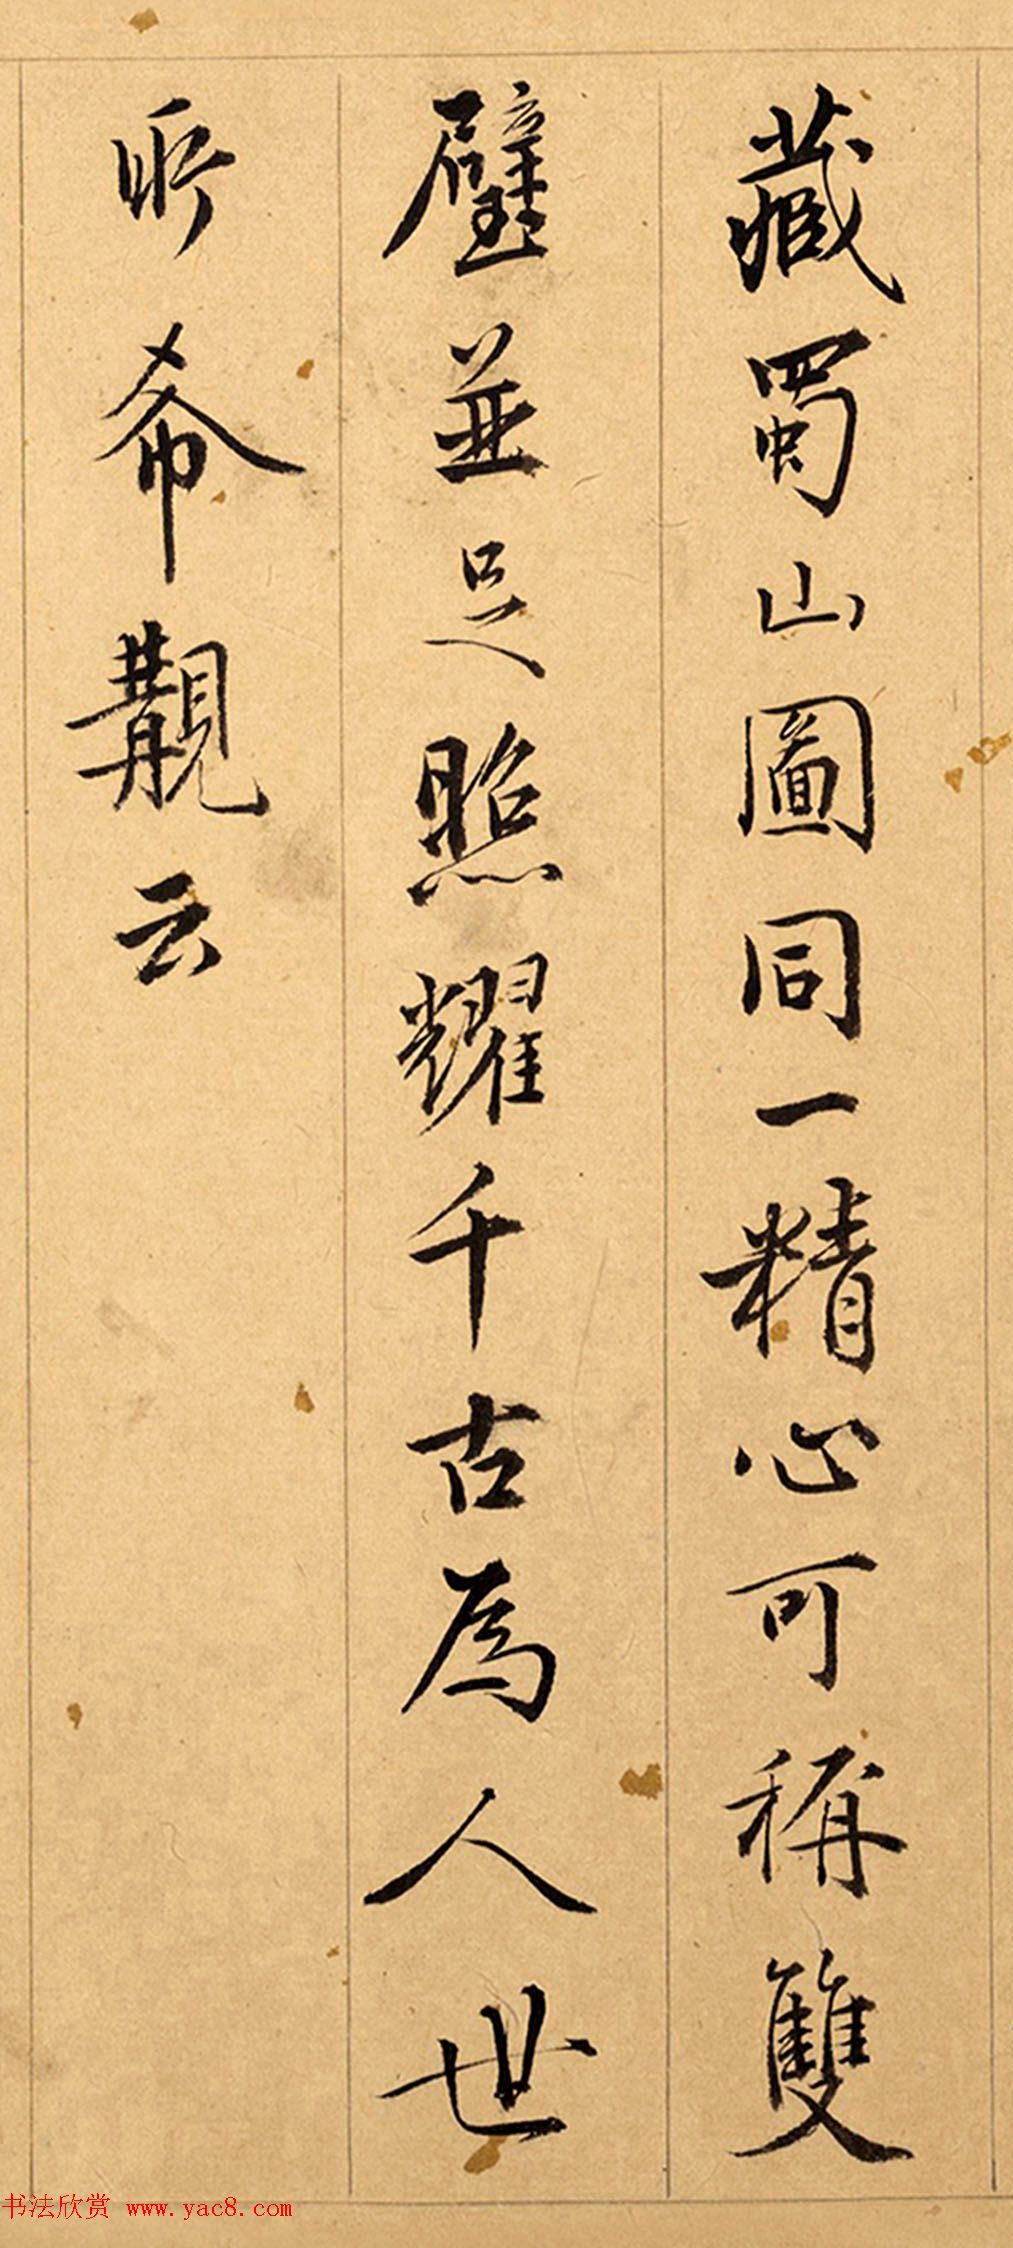 藏蜀山圖同一精心可稱雙
璧並足照耀千古爲人世
所希覯云
书法欣赏 www.yac8.com